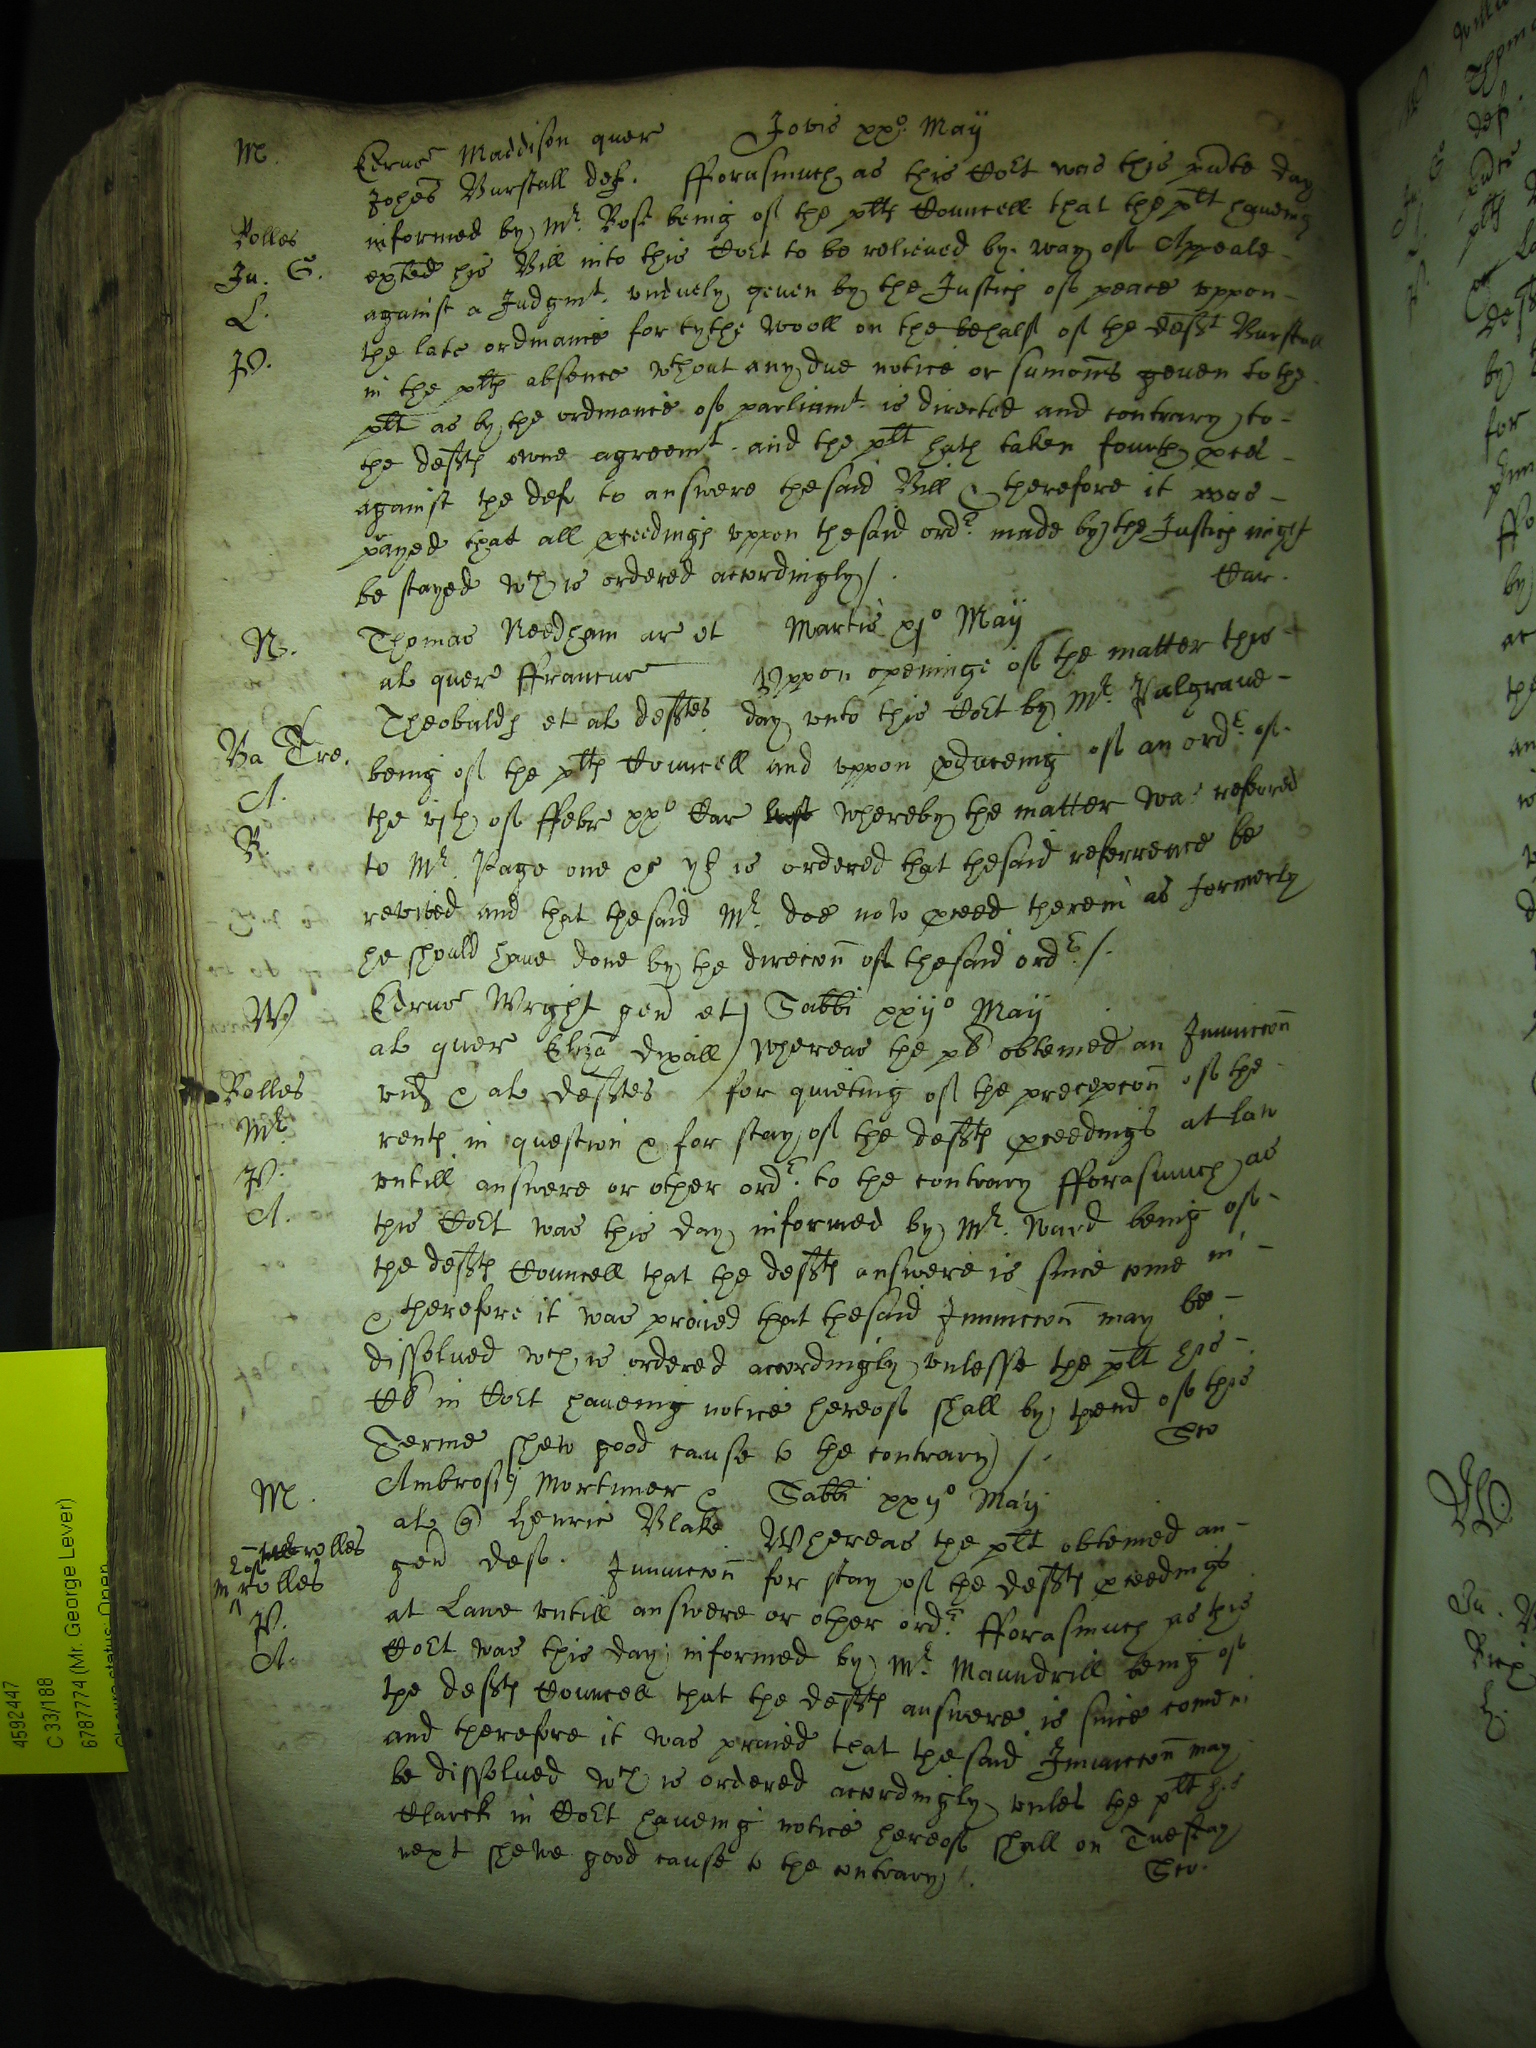 M. Edrus Maddison quer Jovis xxo. Maij
Johes Burstall def. fforasmuch as this Cort was this pnte day
Rolles informed by Mr. Bost being of the plts Councell that the plt haveing
Ju. S. exted his Bill into this Cort to be relieued by way of Appeale
L. against a Judgmt. unduely geven by the Justices of peace uppon
P. the late ordinance for tythe wooll on the behalf of the deft Burstall
in the plts absence wthout any due notice or sumons geven to the
plt as by the ordinance of parliamt. is directed and contrary to
the defts owne agreemt. and the plt hath taken fourth proces
against the def to answere the said Bill & therefore it was
prayed that all proceedings uppon the said ordr. made by the Justices might
be stayed wch is ordered accordingly/. Car.
N. Thomas Needham ar et Martis xjo Maij
al quer ffrancus Uppon openinge of the matter this
Theobalds et al deftes day unto this Cort by Mr. Palgrave
Ba Tre. being of the plts Councell and uppon produceing of an ordr. of
A. the vjth of ffebr xxo Car last whereby the matter was referred
B. to Mr. Page one &c yt is ordered that the said referrence be
revived and that the said Mr. doe now proceed therein as formerly
he should have done by the direccon of the said ordr./.
W Edrus Wright gen et Sabbi xxijo Maij
al quer Eliza Dixall Whereas the pl obteined an Iniunccon
Rolles vid & al deftes for quieting of the precepcon of the
Mr. rents in question & for stay of the defts proceedings at law
P. untill answere or other ordr. to the contrary fforasmuch as
A. this Cort was this day informed by Mr. Ward being of
the defts Councell that the defts answere is since come in
& therefore it was praied that the said Iniunccon may be
dissolued wch is ordered accordingly unlesse the plt his
Cl in Cort haveing notice hereof shall by thend of this
Terme shew good cause to the contrary/. Sco
M. Ambrosij Mortimer & Sabbi xxijo Maij
al q Henric Blake Whereas the plt obteined an
rolles gen def. Iniunccon for stay of the defts proceedings
mr rolles at Lawe untill answere or other ordr. fforasmuch as this
P. Cort was this day informed by Mr. Maundrill being of
A. the defts Councell that the defts answere is since come in
and therefore it was praied that the said Iniunccon may
be dissolued wch is ordered accordingly unles the plt his
Clarck in Cort haveing notice hereof shall on Tuesday
next shewe good cause to the contrary/. Sco.
4592447
C 33/188
6787774 (Mr. George Lever)
Closure status: Open